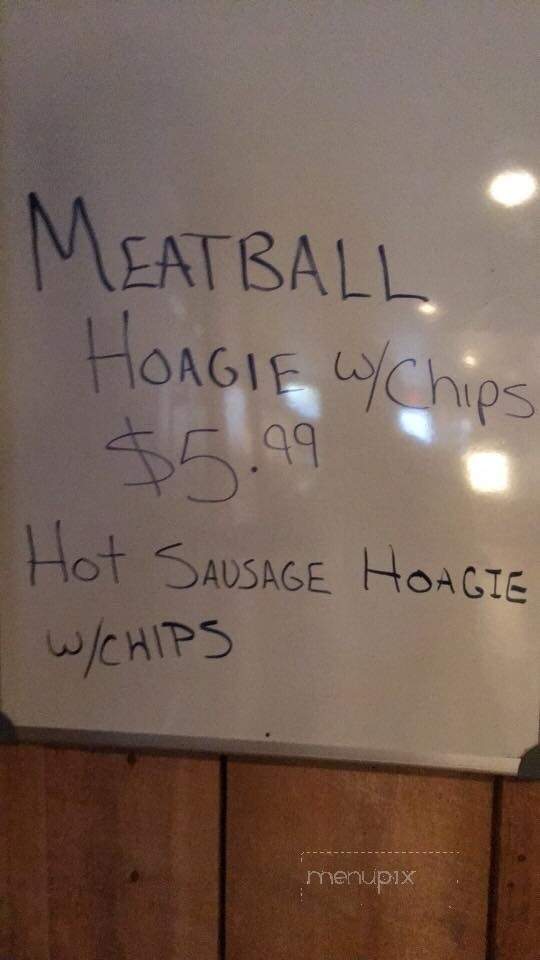 MEATBALL
HOAGIE w/Chips
$5.99
Hot SAUSAGE HOAGIE
w/CHIPS
menupix